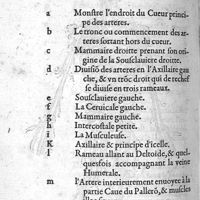 a Monstre l'endroit du Cueur princi-
pe des arteres.
b Le tronc ou commencement des ar-
teres sortant hors du cueur.
c Mammaire droitte prenant son ori-
gine de la Sousclaviere droitte.
d Diuisiõ des arteres en l'Axillaire gau
che, & vn trõc droit qui de rechef
se diuise en trois rameaux.
e Sousclauiere gauche.
f La Ceruicale gauche.
g Mammaire gauche.
h Intercostale petite.
i La Musculeuse.
K Axillaire & principe d'icelle.
l Rameau allant au Deltoide, & quel-
quesfois accompagnant la veine
Humerale.
m l'Artere interieurement enuoyée à la
partie Caue du Pallerõ, & muscles